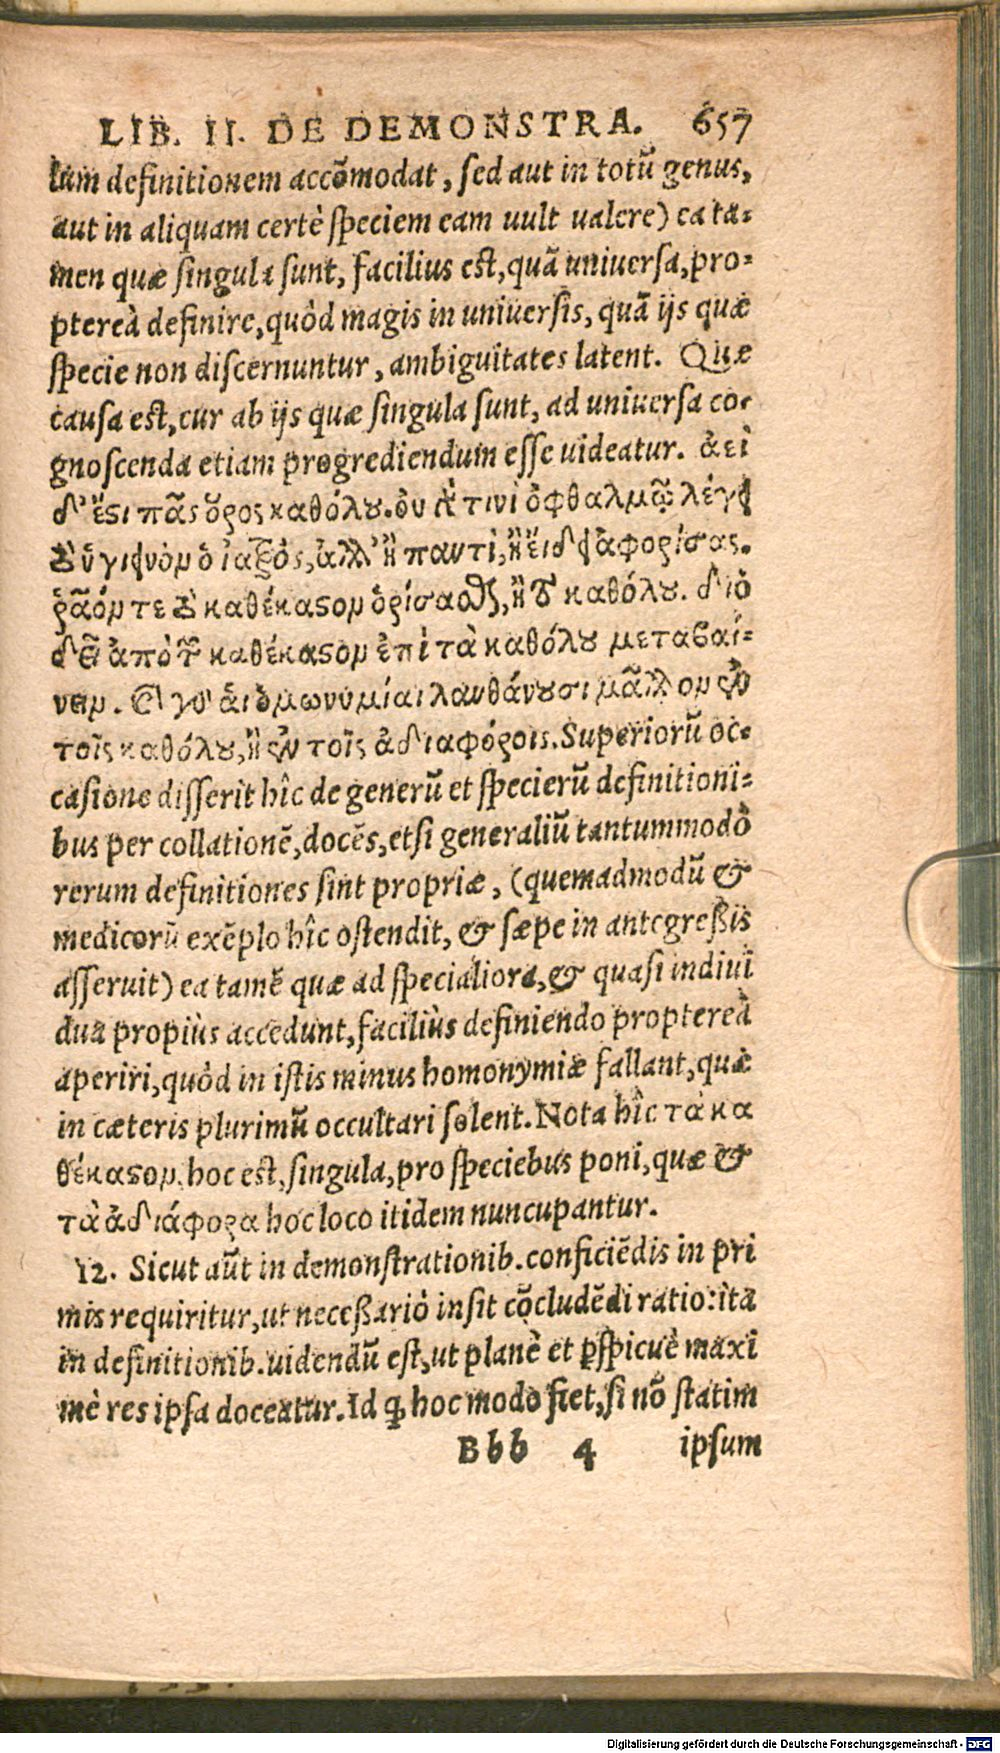 LIB. II. DE DEMONSTRA. 657
lum definitionem accõmodat, sed aut in totũ genus,
aut in aliquam certè speciem eam uult ualere) ea ta-
men quæ singula sunt, facilius est, quã uniuersa, pro-
ptereà definire, quòd magis in uniuersis, quã ijs quæ
specie non discernuntur, ambiguitates latent. Quæ
causa est, cur ab ijs quæ singula sunt, ad uniuersa co-
gnoscenda etiam progrediendum esse uideatur. ἀεὶ
δ' ἔστι πᾶς ὅρος καθόλου. οὐ γάρ τινὶ ὀφθαλμῷ λέγει
τὸ ὑγιεινὸν ὁ ἰατρός, ἀλλ' ἢ παντὶ, ἢ εἴδει ἀφορίσας.
ῥᾷόν τε τὸ καθέκαστον ὁρίσασθαι, ἢ τὸ καθόλου. διὸ
δεῖ ἀπὸ τῶν καθέκαστον ἐπὶ τὰ καθόλου μεταβαί-
νειν. καὶ γὰρ ἁι ὁμωνυμίαι λανθάνουσι μᾶλλον ἐν
τοῖς καθόλου, ἢ ἐν τοῖς ἀδιαφόροις. Superiorũ oc-
casione disserit hîc de generũ et specierũ definitioni-
bus per collationẽ, docẽs, etsi generaliũ tantummodò
rerum definitiones sint propriæ, (quemadmodũ &
medicorũ exẽplo hîc ostendit, & sæpe in antegreßis
asseruit) ea tamẽ quæ ad specialiora, & quasi indiui
dua propiùs accedunt, faciliùs definiendo proptereà
aperiri, quòd in istis minus homonymiæ fallant, quæ
in cæteris plurimũ occultari solent. Nota hîc τὰ κα
θέκαστον, hoc est, singula, pro speciebus poni, quæ &
τὰ ἀδιάφορα hoc loco itidem nuncupantur.
12. Sicut aũt in demonstrationib. conficiẽdis in pri
mis requiritur, ut neceßariò insit cõcludẽdi ratio: ita
in definitionib. uidendũ est, ut planè et ꝑspicuè maxi
mè res ipsa doceatur. Id ꝙ hoc modo fiet, si nõ statim
Bbb 4 ipsum
Digitalisierung gefördert durch die Deutsche Forschungsgemeinschaft - DFG